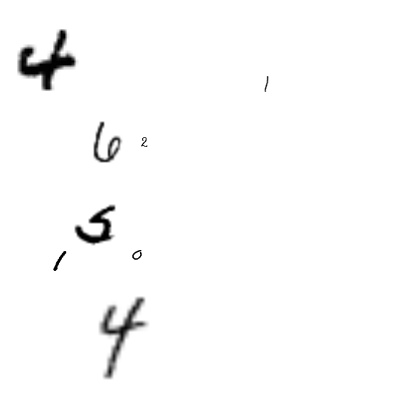 4
1
6 2
5
1 0
4